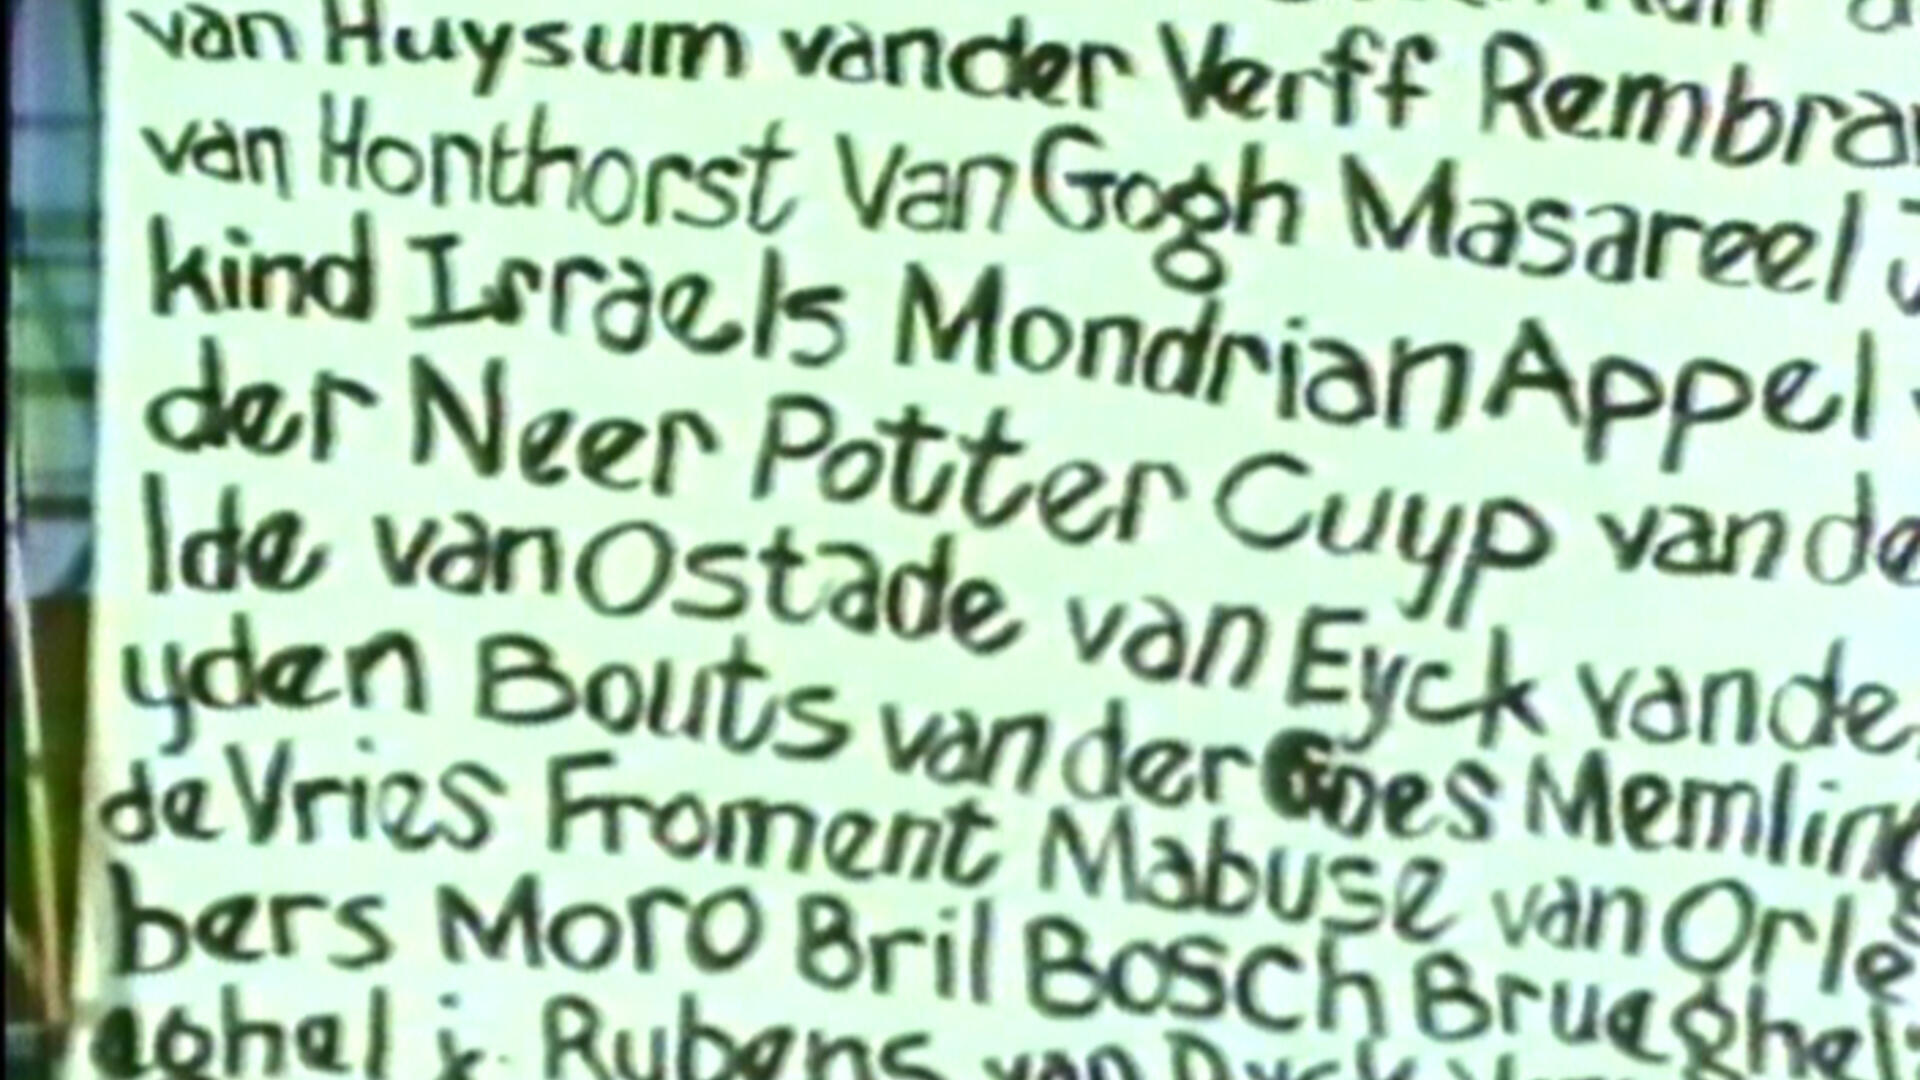 van Huysum vander Verff Rembra
van Honthorst Van Gogh Masareel J
kind Isrraels Mondrian Appel
der Neer Potter Cuyp van de
lde van Ostade van Eyck vande
yden Bouts van der Goes Memling
de Vries Froment Mabuse van Orle
bers Moro Bril Bosch Brueghel
eghel j. Rubens van Dyck